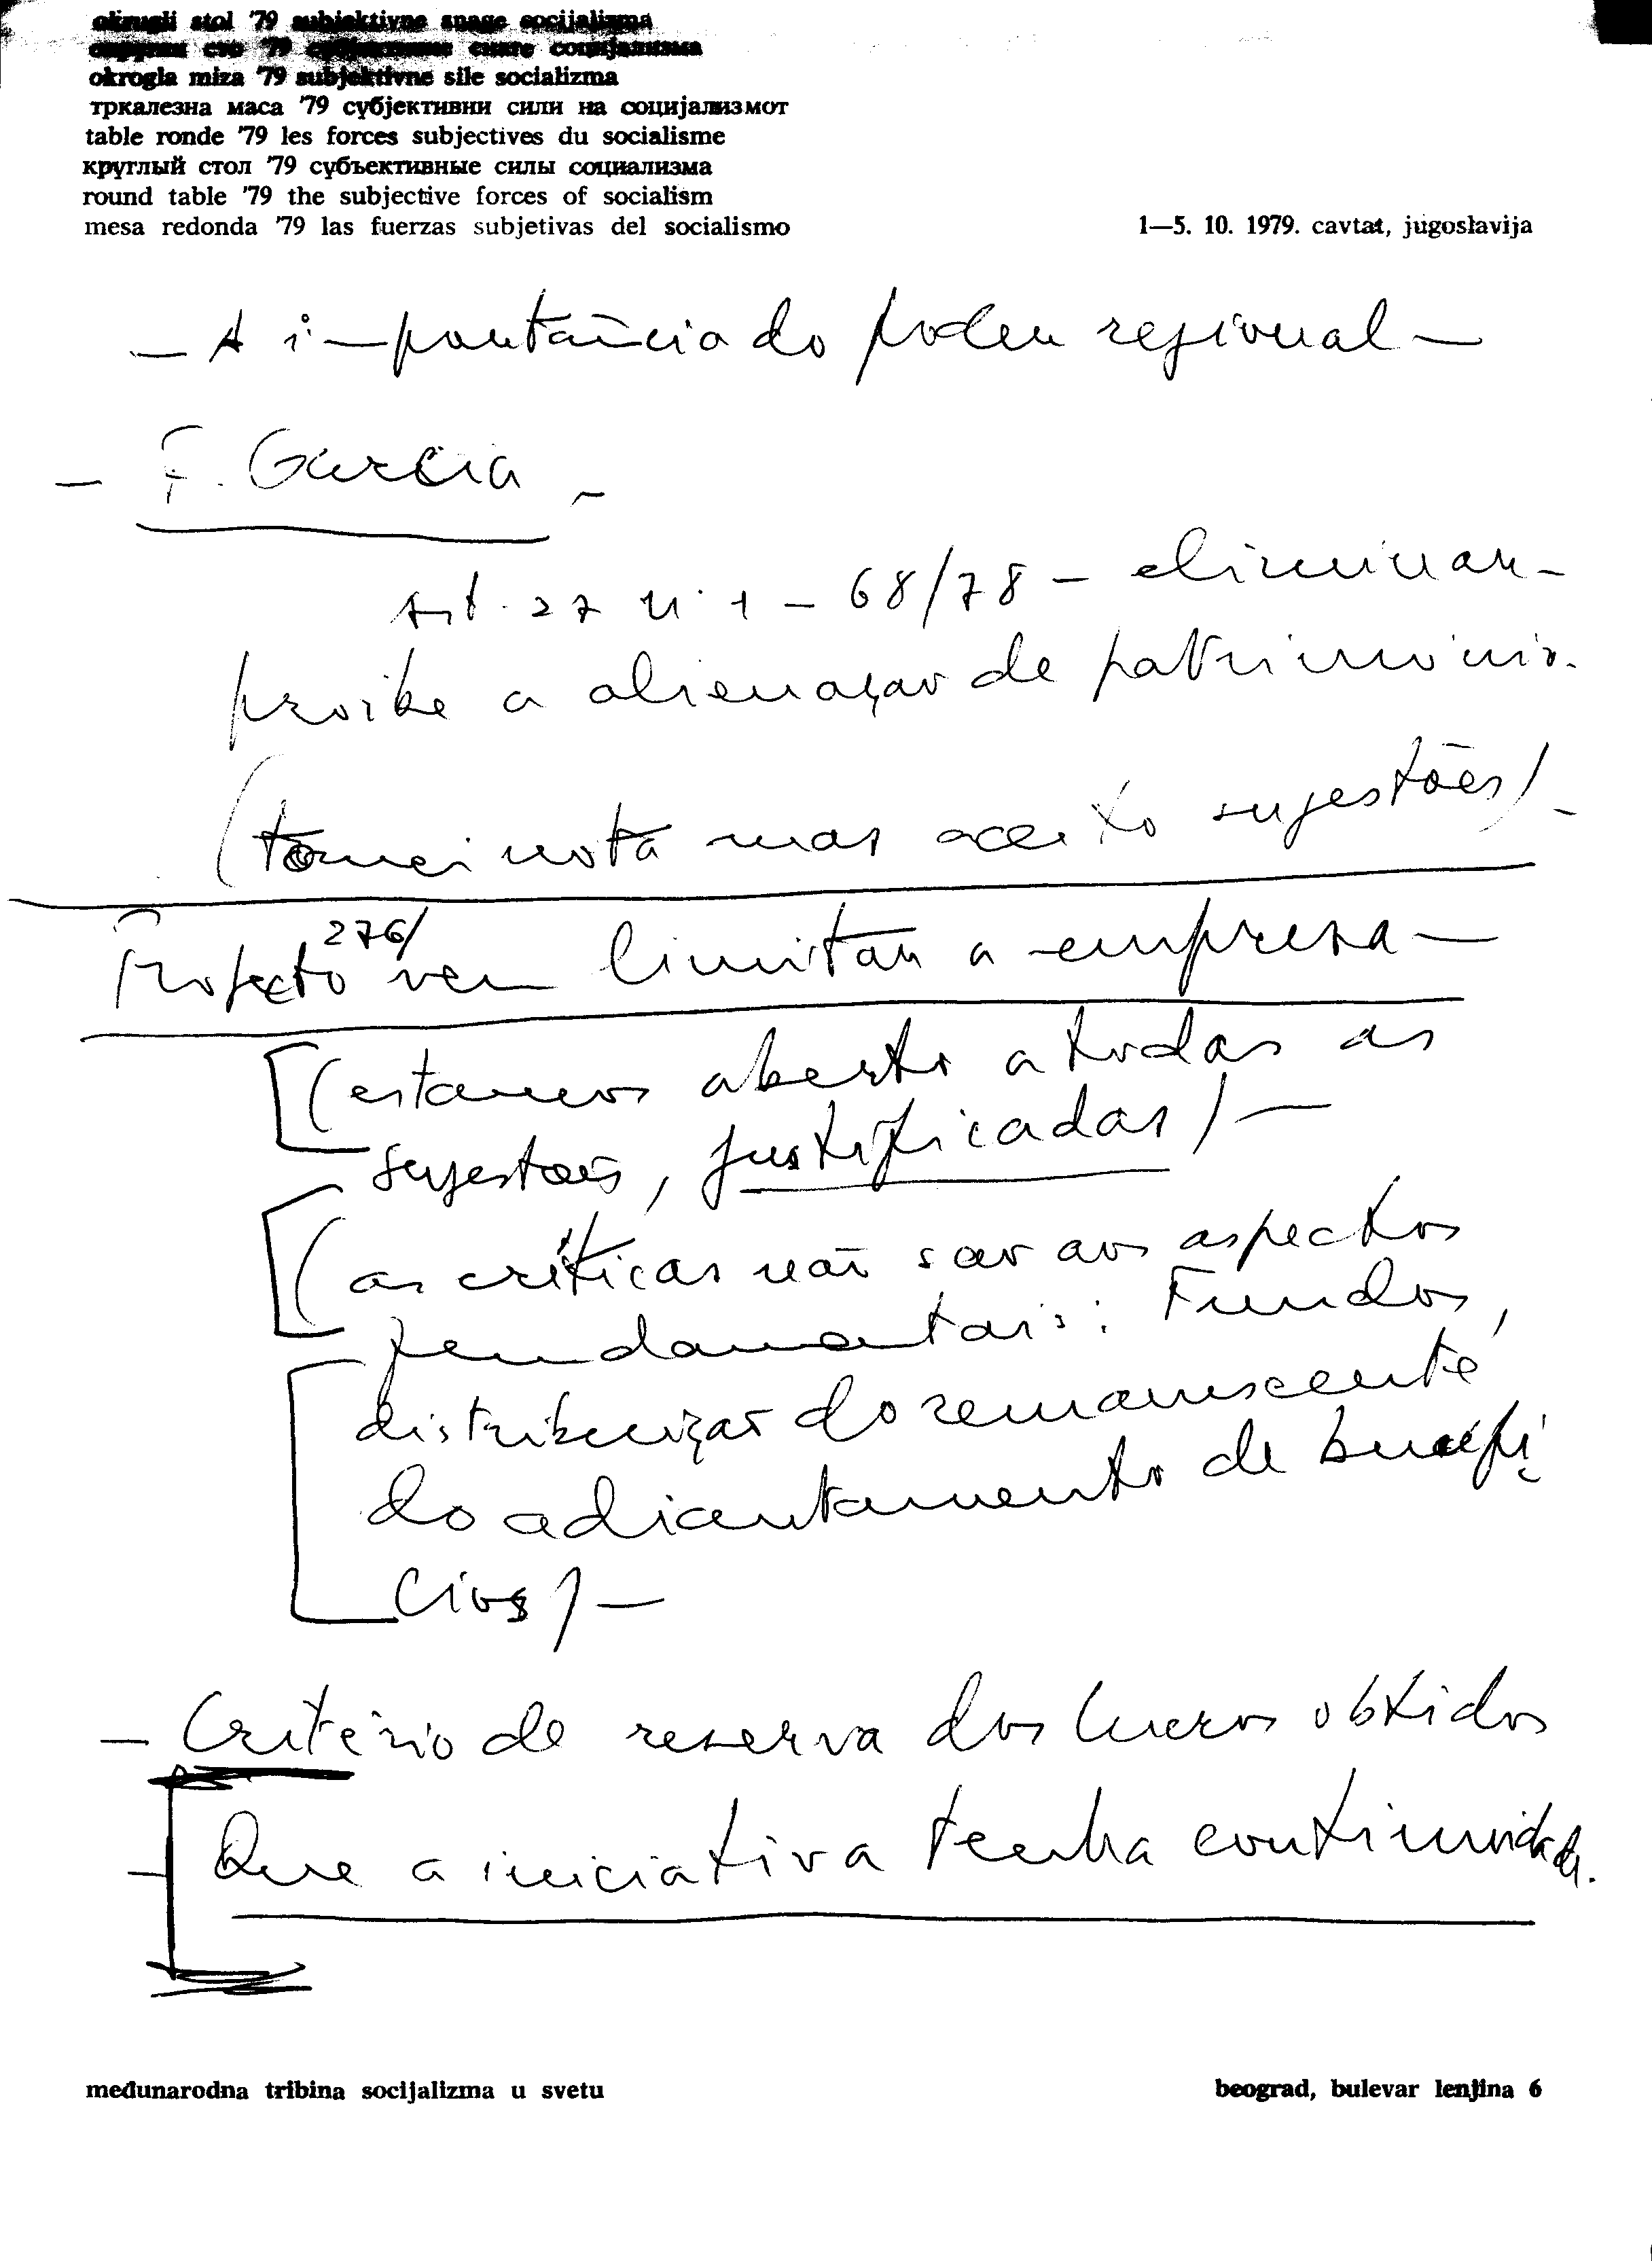 okrugli stol '79 subjektivne snage socijalizma
округли сто '79 субјективне снаге социјализма
okrogla miza '79 subjektivne sile socializma
тркалезна маса '79 субјективни сили на социјализмот
table ronde '79 les forces subjectives du socialisme
круглый стол '79 субъективные силы социализма
round table '79 the subjective forces of socialism
mesa redonda '79 las fuerzas subjetivas del socialismo
1—5. 10. 1979. cavtat, jugoslavija
— A importância do poder regional —
— F. Garcia —
Art. 27 nº 1 — 68/78 — eliminar —
proibe a alienação de património.
(tomei nota mas aceito sugestões) —
Projecto 276/ vem limitar a empresa —
(estamos aberto a todas as
sugestões, justificadas) —
(as críticas não são aos aspectos
fundamentais: Fundos,
distribuição do remanescente
do adiantamento de benefí
cios) —
— Critério de reserva dos lucros obtidos
— Que a iniciativa tenha continuidade.
međunarodna tribina socijalizma u svetu
beograd, bulevar lenjina 6